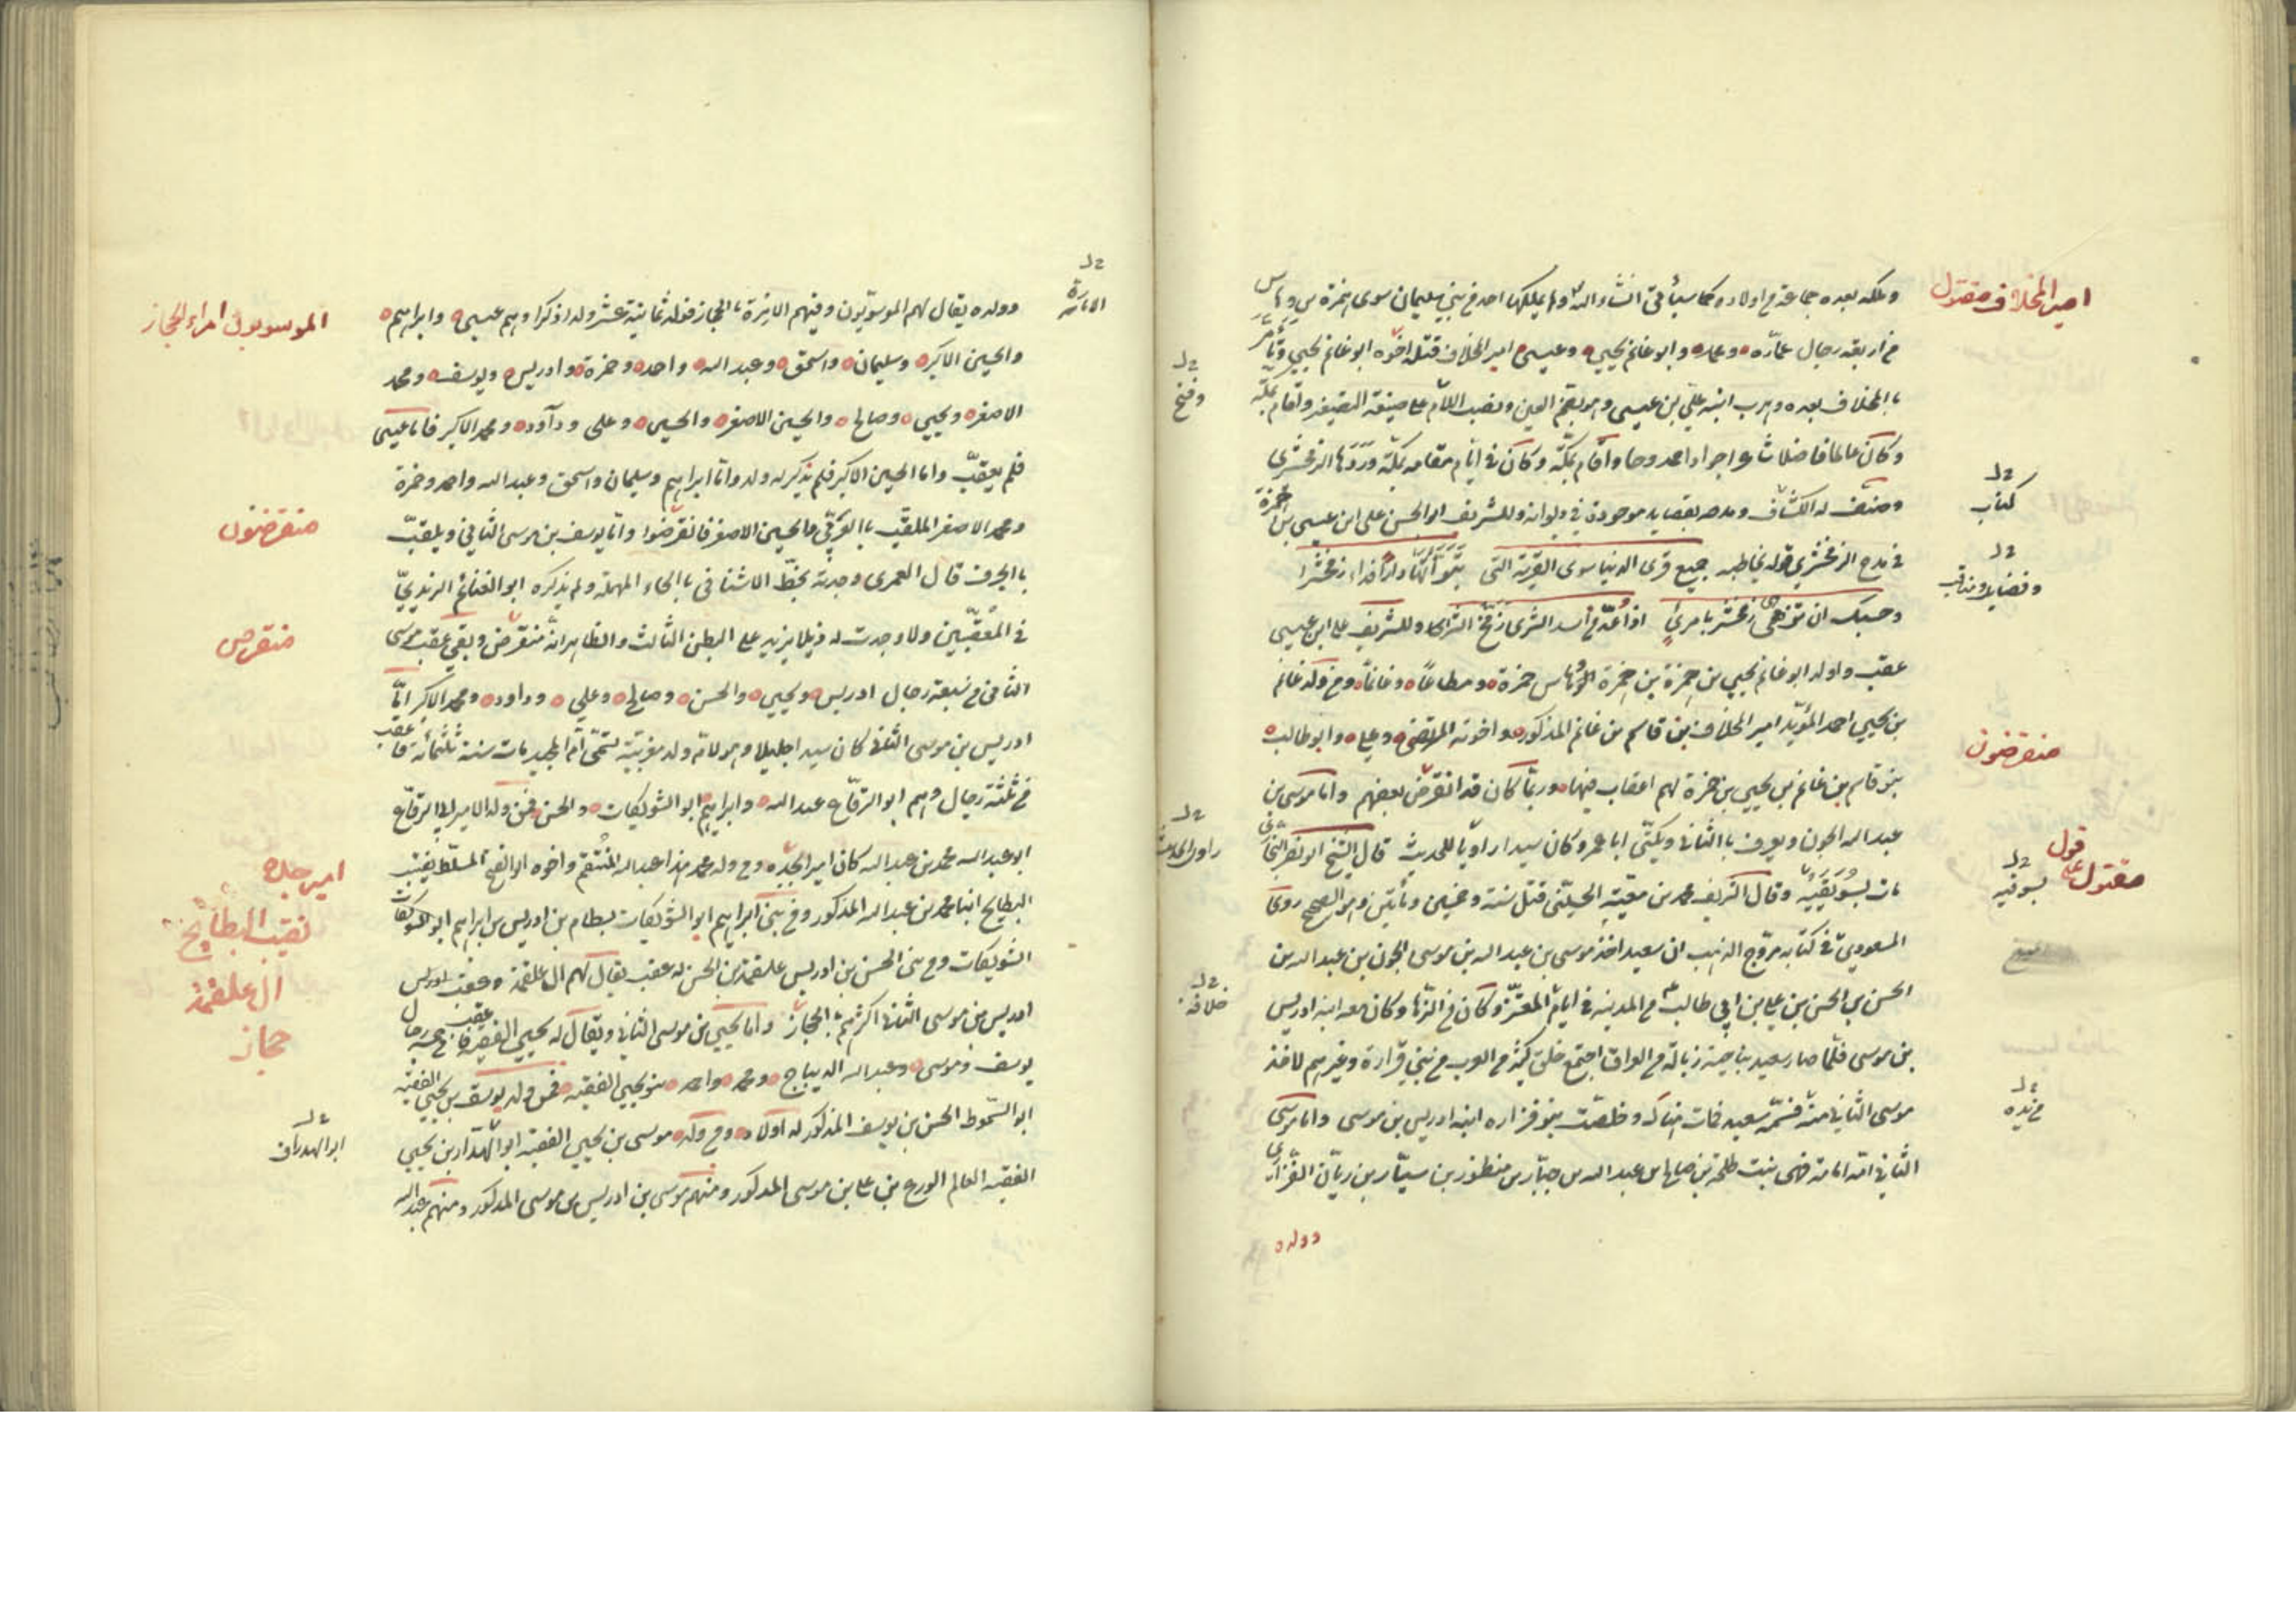 وملكه بعده جماعة من اولاده كما سيأتى انشاء الله ولم يملكها احد من بنى سليمان سوى حمزة بن وهاس
من اربعة رجال عماره ومحمد وابو غانم يحيى وعيسى امير المخلاف قتله اخوه ابو غانم يحيى وتأمر
باالمخلاف بعده وهرب ابنه على بن عيسى وهو بضم العين ونصب اللام على صيغة التصغير واقام بمكة
وكان عالما فاضلا شاعرا جوادا ممدوحا واقام بمكة وكان فى ايام مقامه بمكة وردها الزمخشرى
وصنف له الكشاف ومدحه بقصايد موجودة فى ديوانه وللشريف ابو الحسن على ابن عيسى بن حمزة
فى مدح الزمخشرى قوله يخاطبه جميع قرى الدنيا سوى القرية التى تبوأتها دارا فداء زمخشرا
وحسبك ان تزهى زمخشر بامرئ اذا عد من اسد الشرى زمخ الشرى وللشريف على ابن عيسى
عقب واولد ابو غانم يحيى بن حمزة بن وهاس حمزة ومطاعا وغانما ومن ولد غانم
بن يحيى احمد المؤيد امير المخلاف بن قاسم بن غانم المذكور واخوته المرتضى وعلى وابو طالب
بنو قاسم بن غانم بن يحيى بن حمزة لهم اعقاب فيها وربما كان قد انقرض بعضهم واما موسى بن
عبد الله الجون ويعرف باالثانى ويكنى ابا عمرو وكان سيدا راويا للحديث قال الشيخ ابو نصر البخارى
مات بسويقية وقال الشريف محمد بن معية الحسنى قتل سنة وخمسين ومأتين وهو الصحيح روى
المسعودى فى كتابه مروج الذهب ان سعيد اخذ موسى بن عبد الله بن موسى الجون بن عبد الله بن
الحسن بن الحسن بن على ابن ابى طالب من المدينه فى ايام المعتز وكان من الزهاد وكان معه ابنه ادريس
بن موسى فلما صار سعيد بناحية زبالة من العراق اجتمع خلق كثير من العرب من بنى فزارة وغيرهم لاخذ
موسى الثانى منه فسمه سعيد فمات هناك وخلصت بنو فزاره ابنه ادريس بن موسى واما موسى
الثانى امه امامة بنت طلحة بن صالح بن عبد الله بن جبار بن منظور بن سيار بن ريان الفزارى
وولده
امير المخلاف مقتول
وفتح
كتاب
وفضايل ومناقب
منقرضون
راوى الحديث
قول
مقتول على
بسوقيه
خلافه
من يده
وولده يقال لهم الموسويون وفيهم الامرة باالحجاز فولد ثمانية عشر ولدا ذكرا وهم عيسى وابراهيم
والحسين الاكبر وسليمان واسحق وعبد الله واحمد وحمزة وادريس ويوسف ومحمد
الاصغر ويحيى وصالح والحسين الاصغر والحسن وعلى وداود ومحمد الاكبر فاما عيسى
فلم يعقب واما الحسين الاكبر فلم يذكر له ولد واما ابراهيم وسليمان واسحق وعبد الله واحمد وحمزة
ومحمد الاصغر الملقب باالعركى والحسين الاصغر فانقرضوا واما يوسف بن موسى الثانى ويلقب
باالحرف قال العمرى وجدته بخط الاشنانى باالحاء المهملة ولم يذكره ابو الغنائم الزيدى
فى المعقبين ولا وجدت له ذيلا يزيد على البطن الثالث والظاهر انه منقرض وبقى عقب موسى
الثانى من سبعة رجال ادريس ويحيى والحسن وصالح وعلى وداود ومحمد الاكبر اما
ادريس بن موسى الثانى كان سيدا جليلا وهو لام ولد مغربية تسمى ام المجيد مات سنة ثلثمائه فاعقب
من ثلثة رجال وهم ابو الرقاع عبد الله وابراهيم ابو الشويكات والحسن فمن ولد الامير ابى الرقاع
ابو عبد الله محمد بن عبد الله كان امير الجده ومن ولد محمد هذا عبد الله المنتقم واخوه ابو الفتح المسلط نقيب
البطايح ابنا محمد بن عبد الله المذكور ومن بنى ابراهيم ابو الشويكات بسطام بن ادريس بن ابراهيم ابو الشويكات
الشويكات ومن بنى الحسن بن ادريس علقمة بن الحسن له عقب يقال لهم ال علقمة وعقب ادريس
ادريس بن موسى الثانى اكثرهم باالحجاز واما يحيى بن موسى الثانى ويقال له يحيى الفقيه فاعقب من خمسة رجال
يوسف وموسى وعبد الله الديباج ومحمد واحمد بنو يحيى الفقيه فمن ولد يوسف بن يحيى الفقيه
ابو السموط الحسن بن يوسف المذكور له اولاد ومن ولد موسى بن يحيى الفقيه ابو الهدار بن يحيى
الفقيه العالم الورع بن على بن موسى المذكور ومنهم موسى بن ادريس بن موسى المذكور ومنهم عبد الله
الامارة
الموسويون امراء الحجاز
منقرضون
منقرض
امير جده
نقيب البطايح
ال علقمة
حجاز